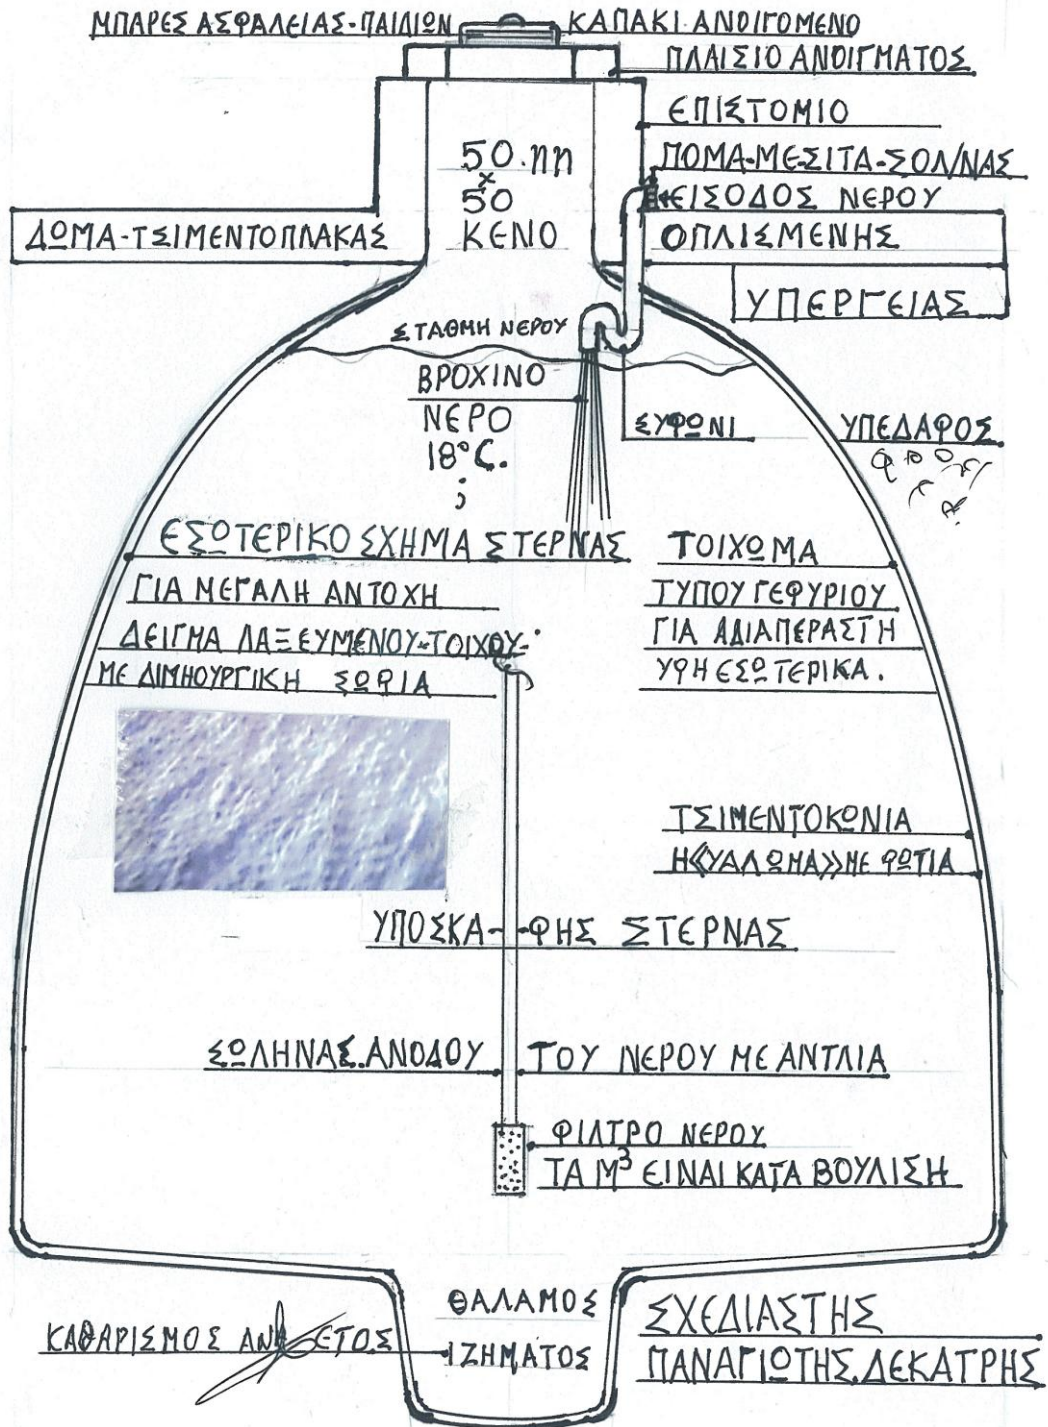 ΜΠΑΡΕΣ ΑΣΦΑΛΕΙΑΣ-ΠΑΙΔΙΩΝ
ΚΑΠΑΚΙ ΑΝΟΙΓΟΜΕΝΟ
ΠΛΑΙΣΙΟ ΑΝΟΙΓΜΑΤΟΣ
ΕΠΙΣΤΟΜΙΟ
ΠΟΜΑ-ΜΕ-ΣΙΤΑ-ΣΟΛ/ΝΑΣ
ΕΙΣΟΔΟΣ ΝΕΡΟΥ
50.ΠΠ
×
50
ΚΕΝΟ
ΔΩΜΑ-ΤΣΙΜΕΝΤΟΠΛΑΚΑΣ
ΟΠΛΙΣΜΕΝΗΣ
ΥΠΕΡΓΕΙΑΣ
ΣΤΑΘΜΗ ΝΕΡΟΥ
ΒΡΟΧΙΝΟ
ΝΕΡΟ
18°C.
;
ΣΥΦΩΝΙ
ΥΠΕΔΑΦΟΣ
ΕΣΩΤΕΡΙΚΟ ΣΧΗΜΑ ΣΤΕΡΝΑΣ
ΓΙΑ ΜΕΓΑΛΗ ΑΝΤΟΧΗ
ΔΕΙΓΜΑ ΛΑΞΕΥΜΕΝΟΥ-ΤΟΙΧΟΥ-
ΜΕ ΔΙΜΗΟΥΡΓΙΚΗ ΣΩΦΙΑ
ΤΟΙΧΩΜΑ
ΤΥΠΟΥ ΓΕΦΥΡΙΟΥ
ΓΙΑ ΑΔΙΑΠΕΡΑΣΤΗ
ΥΦΗ ΕΣΩΤΕΡΙΚΑ.
ΤΣΙΜΕΝΤΟΚΩΝΙΑ
Η«ΥΑΛΩΜΑ»ΜΕ ΦΩΤΙΑ
ΥΠΟΣΚΑ-ΦΗΣ ΣΤΕΡΝΑΣ
ΣΩΛΗΝΑΣ.ΑΝΟΔΟΥ ΤΟΥ ΝΕΡΟΥ ΜΕ ΑΝΤΛΙΑ
ΦΙΛΤΡΟ ΝΕΡΟΥ
ΤΑ Μ³ ΕΙΝΑΙ ΚΑΤΑ ΒΟΥΛΙΣΗ
ΘΑΛΑΜΟΣ
ΙΖΗΜΑΤΟΣ
ΚΑΘΑΡΙΣΜΟΣ
ΣΧΕΔΙΑΣΤΗΣ
ΠΑΝΑΓΙΩΤΗΣ.ΔΕΚΑΤΡΗΣ